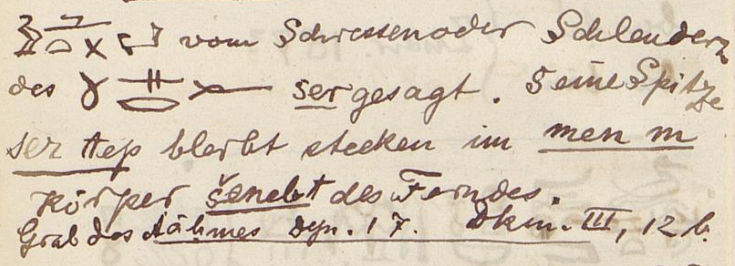 vom Schiessen oder Schleudern
des ser gesagt. Seine Spitze
ser tep bleibt stecken im men m
Körper šenebt des Feindes.
Grab des Aāhmes Dyn. 17. Dkm. III, 12 b.